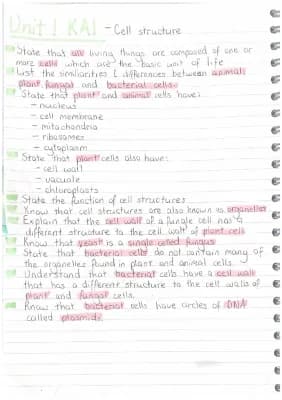 Unit 1 KA1 - Cell structure
State that all living things are composed of one or
more cells which are the basic unit of life
List the similarities & differences between animal,
plant, fungal and bacterial cells.
State that plant and animal cells have:
- nucleus
- cell membrane
- mitochondria
- ribosomes
- cytoplasm
State that plant cells also have:
- cell wall
- vacuole
- chloroplasts
State the function of cell structures
Know that cell structures are also known as organelles
Explain that the cell wall of a fungle cell has a
different structure to the cell wall of plant cells
Know that yeast is a single celled fungus
State that bacterial cells do not contain many of
the organelles found in plant and animal cells.
Understand that bacterial cells have a cell wall
that has a different structure to the cell walls of
plant and fungal cells.
Know that bacterial cells have circles of DNA
called plasmids.